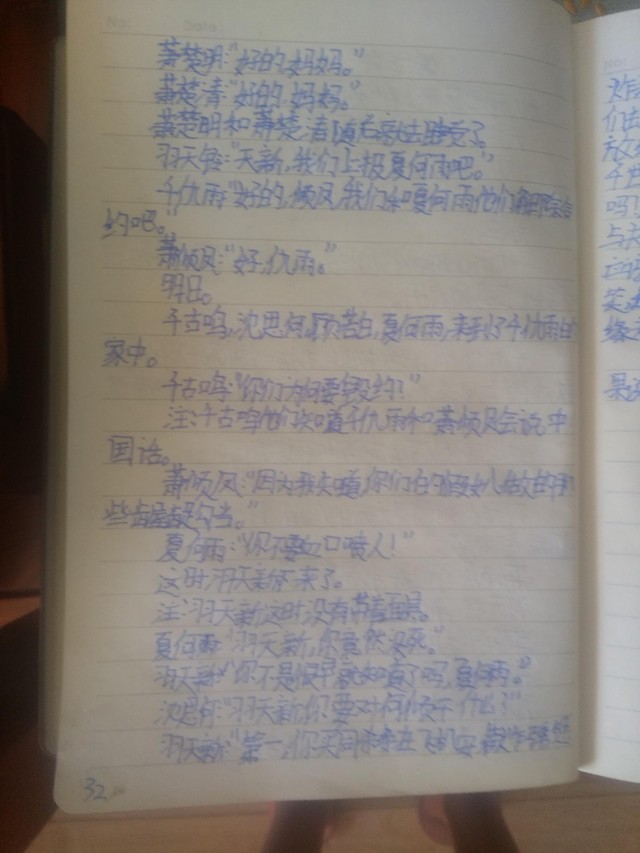 No.
Date
萧楚明:“好的,妈妈。”
萧楚清:“好的,妈妈。”
萧楚明和萧楚清随后就去睡觉了。
羽天:“天新,我们上报夏何雨吧。”
千仇雨:“好的,倾风,我们和夏何雨他们
约吧。”
萧倾风:“好,仇雨。”
明日。
千古鸣,沈思何,顾苦白,夏何雨,来到了千仇雨的
家中。
千古鸣:“你们为何要毁约?”
注:千古鸣他们知道千仇雨和萧倾风会说中
国话。
萧倾风:“因为我知道,你们
些龌龊勾当。”
夏何雨:“你不要血口喷人!”
这时羽天新下来了。
注:羽天新这时没有带着面具。
夏何雨:“羽天新,你竟然没死。”
羽天新:“你不是很早就知道了吗,夏何雨。”
沈思何:“羽天新,你要对何雨干什么?”
羽天新:“第一,你买同
32
No.
们
吗?
与
缘
果